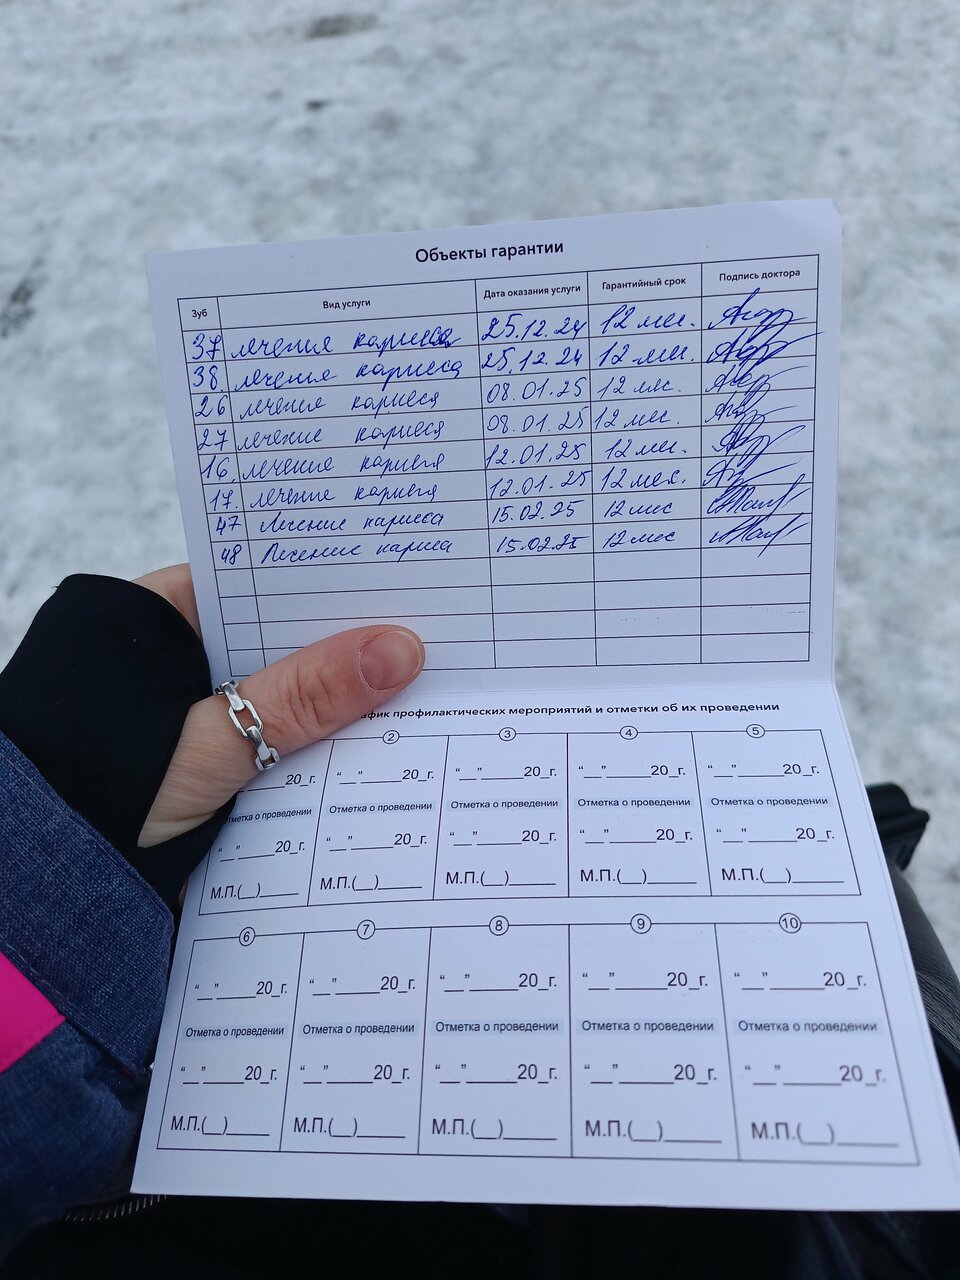 Объекты гарантии
Зуб Вид услуги Дата оказания услуги Гарантийный срок Подпись доктора
37 лечения кариеса 25.12.24 12 мес.
38. лечение кариеса 25.12.24 12 мес.
26 лечение кариеса 08.01.25 12 мес.
27 лечение кариеса 08.01.25 12 мес.
16. лечение кариеса 12.01.25 12 мес.
17. лечение кариеса 12.01.25 12 мес.
47 Лечение кариеса 15.02.25 12 мес
48 Лечение кариеса 15.02.25 12 мес
профилактических мероприятий и отметки об их проведении
2 3 4 5
20_г. “__”_____20_г. “__”_____20_г. “__”_____20_г. “__”_____20_г.
Отметка о проведении Отметка о проведении Отметка о проведении Отметка о проведении Отметка о проведении
“__”_____20_г. “__”_____20_г. “__”_____20_г. “__”_____20_г. “__”_____20_г.
М.П.(__)_____ М.П.(__)_____ М.П.(__)_____ М.П.(__)_____ М.П.(__)_____
6 7 8 9 10
“__”_____20_г. “__”_____20_г. “__”_____20_г. “__”_____20_г. “__”_____20_г.
Отметка о проведении Отметка о проведении Отметка о проведении Отметка о проведении Отметка о проведении
“__”_____20_г. “__”_____20_г. “__”_____20_г. “__”_____20_г. “__”_____20_г.
М.П.(__)_____ М.П.(__)_____ М.П.(__)_____ М.П.(__)_____ М.П.(__)_____